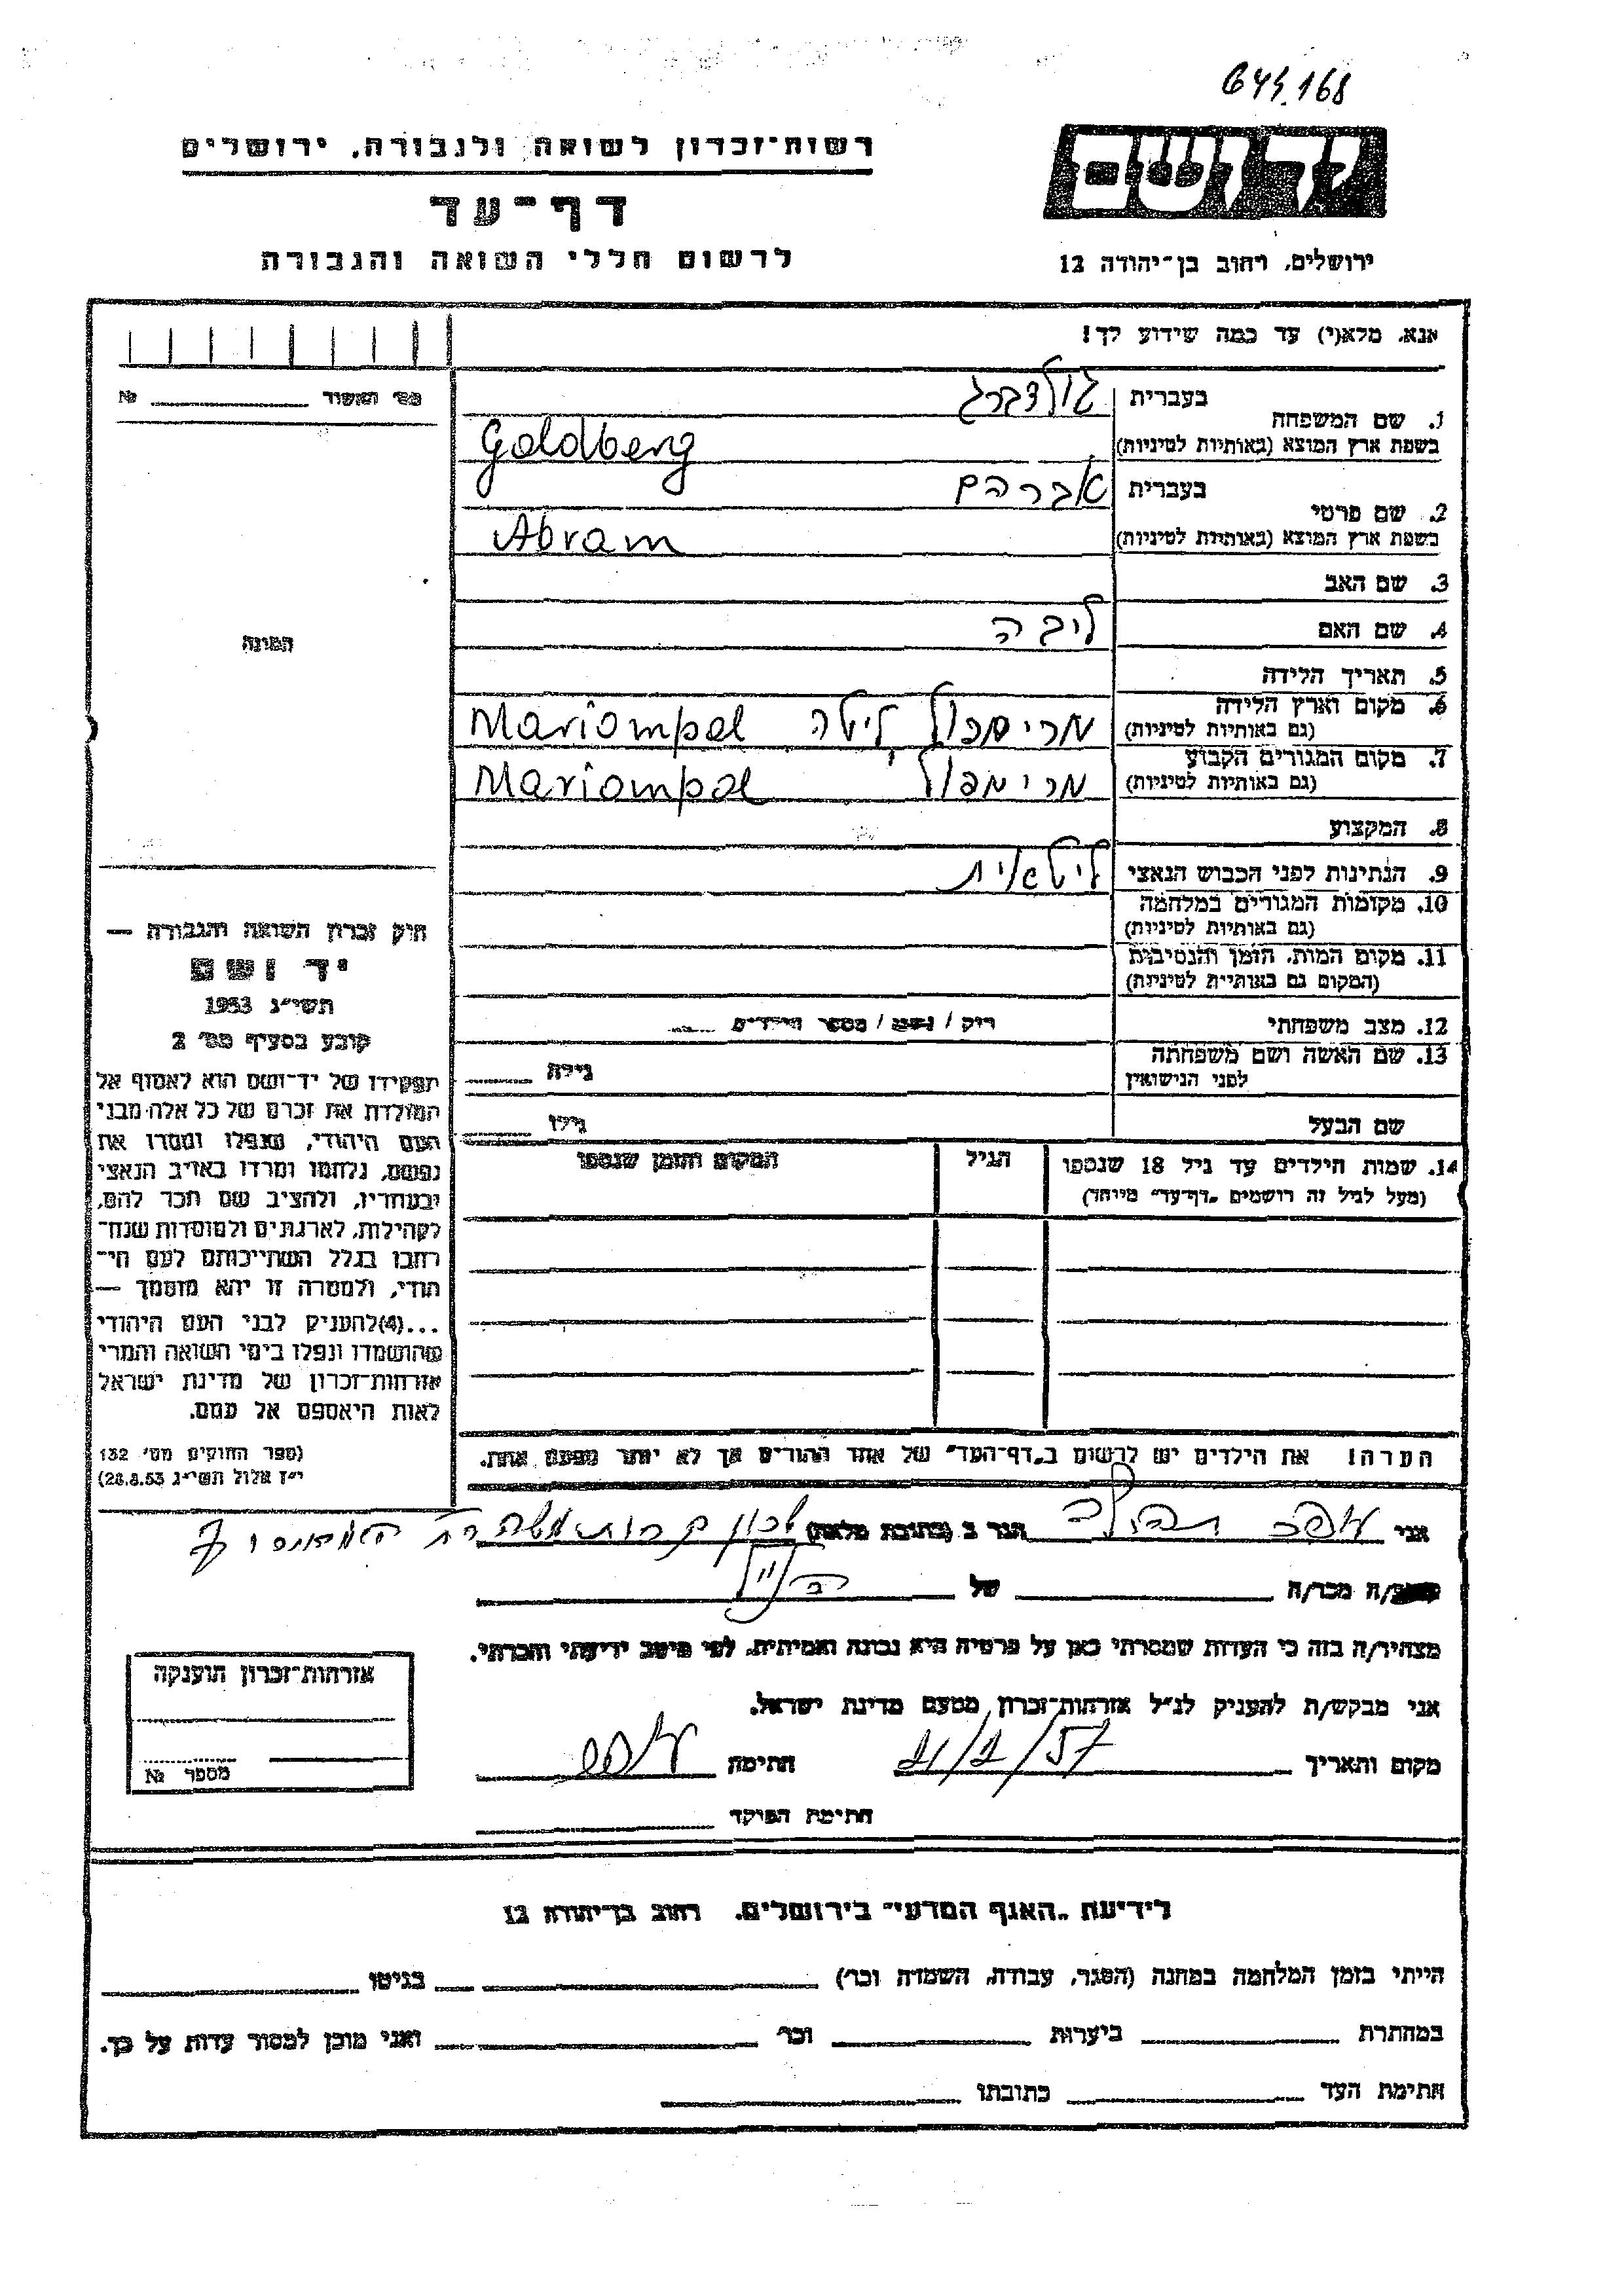 644.168
יד ושם
רשות־זכרון לשואה ולגבורה, ירושלים
דף־עד
לרשום חללי השואה והגבורה
ירושלים, רחוב בן־יהודה 12
אנא, מלא(י) עד כמה שידוע לך!
מס׳ האשור № ____
1. שם המשפחה
בעברית גולדברג
בשפת ארץ המוצא (באותיות לטיניות) Goldberg
2. שם פרטי
בעברית אברהם
בשפת ארץ המוצא (באותיות לטיניות) Abram
3. שם האב
4. שם האם ליבה
5. תאריך הלידה
6. מקום וארץ הלידה
(גם באותיות לטיניות) מרימפול, ליטה Mariompol
7. מקום המגורים הקבוע
(גם באותיות לטיניות) מרימפול Mariompol
8. המקצוע
9. הנתינות לפני הכבוש הנאצי ליטאית
10. מקומות המגורים במלחמה
(גם באותיות לטיניות)
11. מקום המות, הזמן והנסיבות
(המקום גם באותיות לטיניות)
12. מצב משפחתי רוק / נשוי / מספר הילדים
13. שם האשה ושם משפחתה
לפני הנישואין
גילה
שם הבעל
גילו
14. שמות הילדים עד גיל 18 שנספו
(מעל לגיל זה רושמים „דף־עד״ מיוחד)
הגיל
המקום והזמן שנספו
הערה! את הילדים יש לרשום ב„דף־העד״ של אחד ההורים אך לא יותר מפעם אחת.
התמונה
חוק זכרון השואה והגבורה —
יד ושם
תשי״ג 1953
קובע בסעיף מס׳ 2
תפקידו של יד־ושם הוא לאסוף אל
המולדת את זכרם של כל אלה מבני
העם היהודי, שנפלו ומסרו את
נפשם, נלחמו ומרדו באויב הנאצי
ובעוזריו, ולהציב שם וזכר להם,
לקהילות, לארגונים ולמוסדות שנח־
רבו בגלל השתייכותם לעם הי־
הודי, ולמטרה זו יהא מוסמך —
...(4)להעניק לבני העם היהודי
שהושמדו ונפלו בימי השואה והמרי
אזרחות־זכרון של מדינת ישראל
לאות היאספם אל עמם.
(ספר החוקים מס׳ 132
י״ז אלול תשי״ג 28.8.53)
אני
הגר ב (כתובת מלאה) שכון קרית משה
קרוב/ה מכר/ה
של
מצהיר/ה בזה כי העדות שמסרתי כאן על פרטיה היא נכונה ואמיתית, לפי מיטב ידיעתי והכרתי.
אני מבקש/ת להעניק לנ״ל אזרחות־זכרון מטעם מדינת ישראל.
מקום ותאריך 21/2/57 חתימה
חתימת הפוקד
אזרחות־זכרון הוענקה
מספר №
לידיעת „האגף המדעי״ בירושלים, רחוב בן־יהודה 12
הייתי בזמן המלחמה במחנה (הסגר, עבודה, השמדה וכו׳) ____ בגיטו ____
במחתרת ____ ביערות ____ וכו׳ ____ ואני מוכן למסור עדות על כך.
חתימת העד ____ כתובתו ____